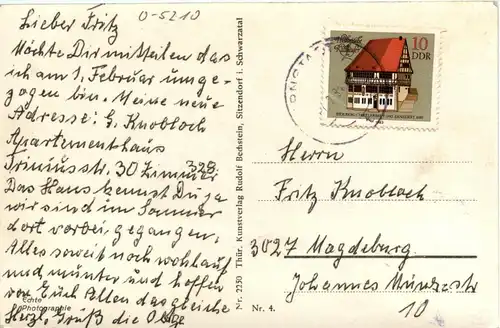 Lieber Fritz
0-5210
Möchte Dir mitteilen das
ich am 1. Februar umge-
zogen bin. Meine neue
Adresse: G. Knobloch
Apartementhaus
Triniusstr. 30 Zimmer 328
Das Haus kennst Du ja
wir sind im Sommer
dort vorbei gegangen,
Alles soweit noch wohlauf
und munter und hoffen
von Euch Allen das gleiche
Herzl. Gruß die
Echte
Photographie
Nr. 2239 Thür. Kunstverlag Rudolf Bechstein, Sitzendorf i. Schwarzatal
Nr. 4.
10
DDR
Herrn
Fritz Knobloch
3027 Magdeburg
Johannes Münzerstr
10